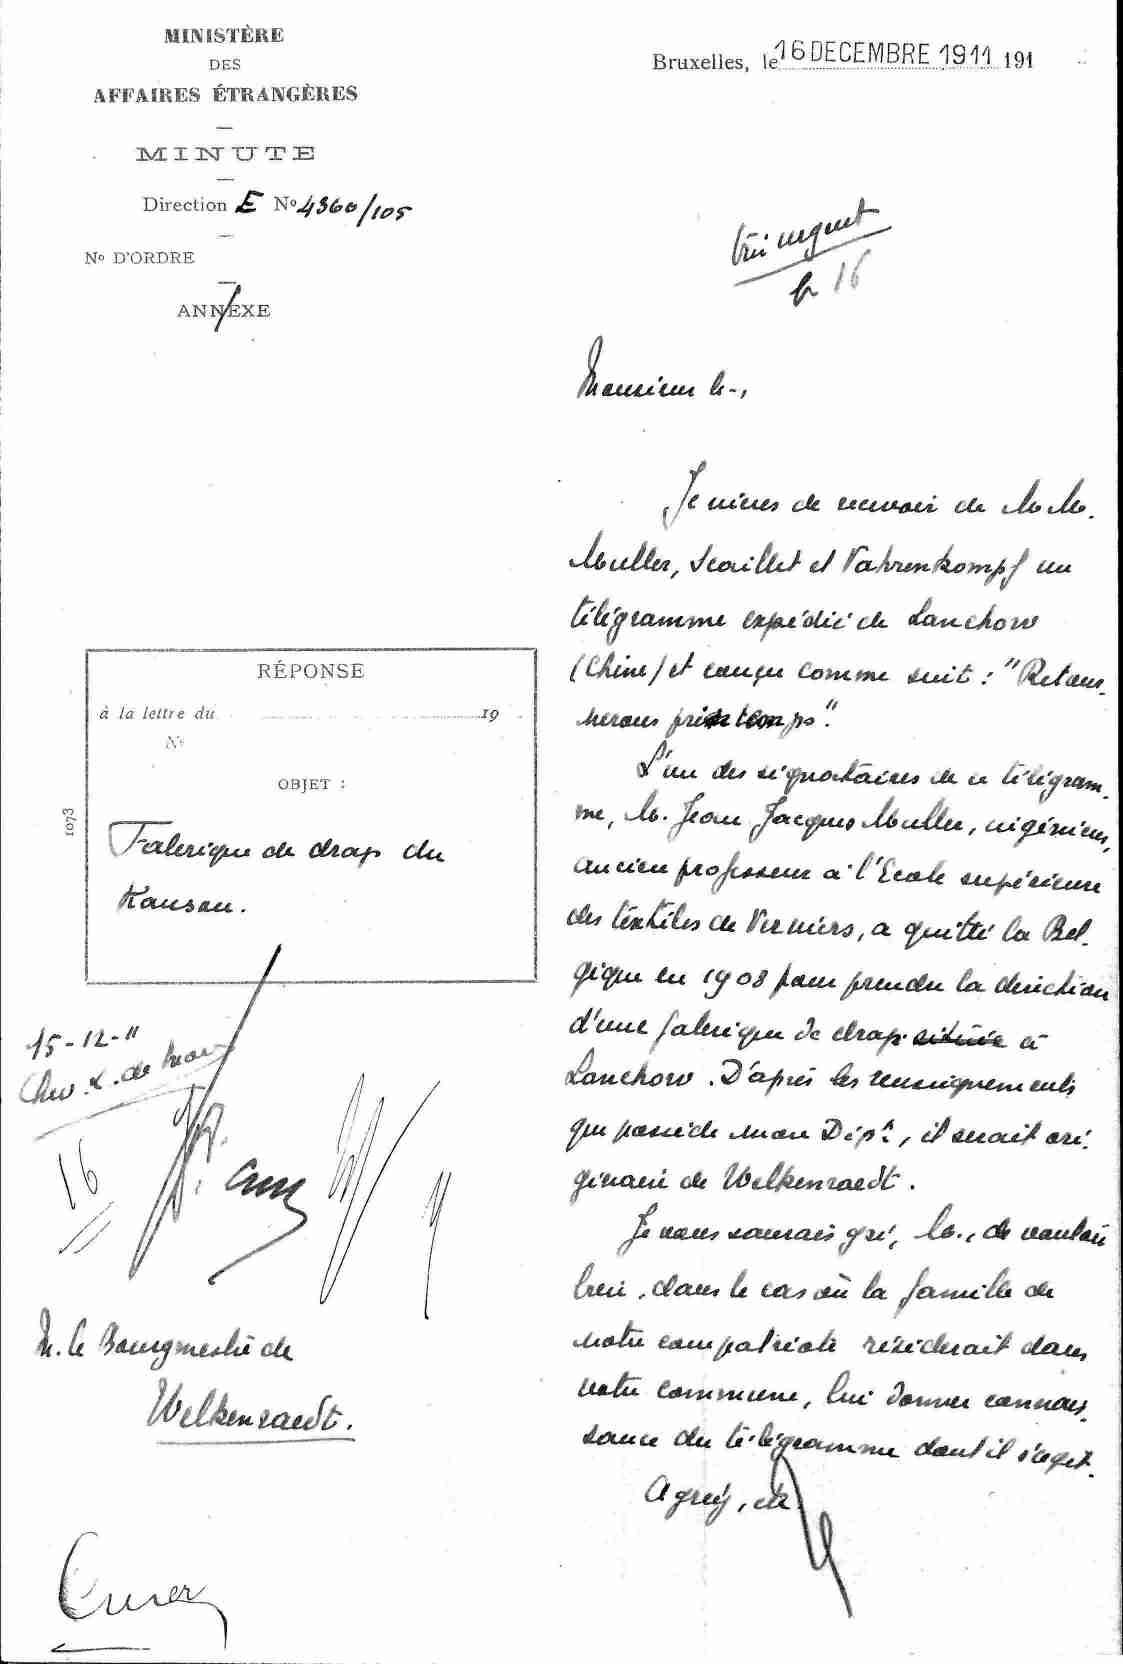 MINISTÈRE
DES
AFFAIRES ÉTRANGÈRES
MINUTE
Direction E No 4360/105
No D'ORDRE
ANNEXE
Bruxelles, le 16 DECEMBRE 1911 191
Très urgent
16
Monsieur le -,
Je viens de recevoir de M M.
Muller, Scaillet et Vahrenkompf un
télégramme expédié de Lanchow
(Chine) et conçu comme suit : "Retour-
nerons printemps".
L'un des signataires de ce télégram-
me, M. Jean Jacques Muller, ingénieur,
ancien professeur à l'Ecole supérieure
des textiles de Verviers, a quitté la Bel-
gique en 1908 pour prendre la direction
d'une fabrique de drap située à
Lanchow. D'après les renseignements
que possède mon Dépt, il serait ori-
ginaire de Welkenraedt.
Je vous saurais gré, M., de vouloir
bien, dans le cas où la famille de
notre compatriote résiderait dans
votre commune, lui donner connais-
sance du télégramme dont il s'agit.
Agréez, etc
RÉPONSE
à la lettre du 19
No
OBJET :
Fabrique de drap du
Kansou.
1073
15-12-11
16
M. le Bourgmestre de
Welkenraedt.